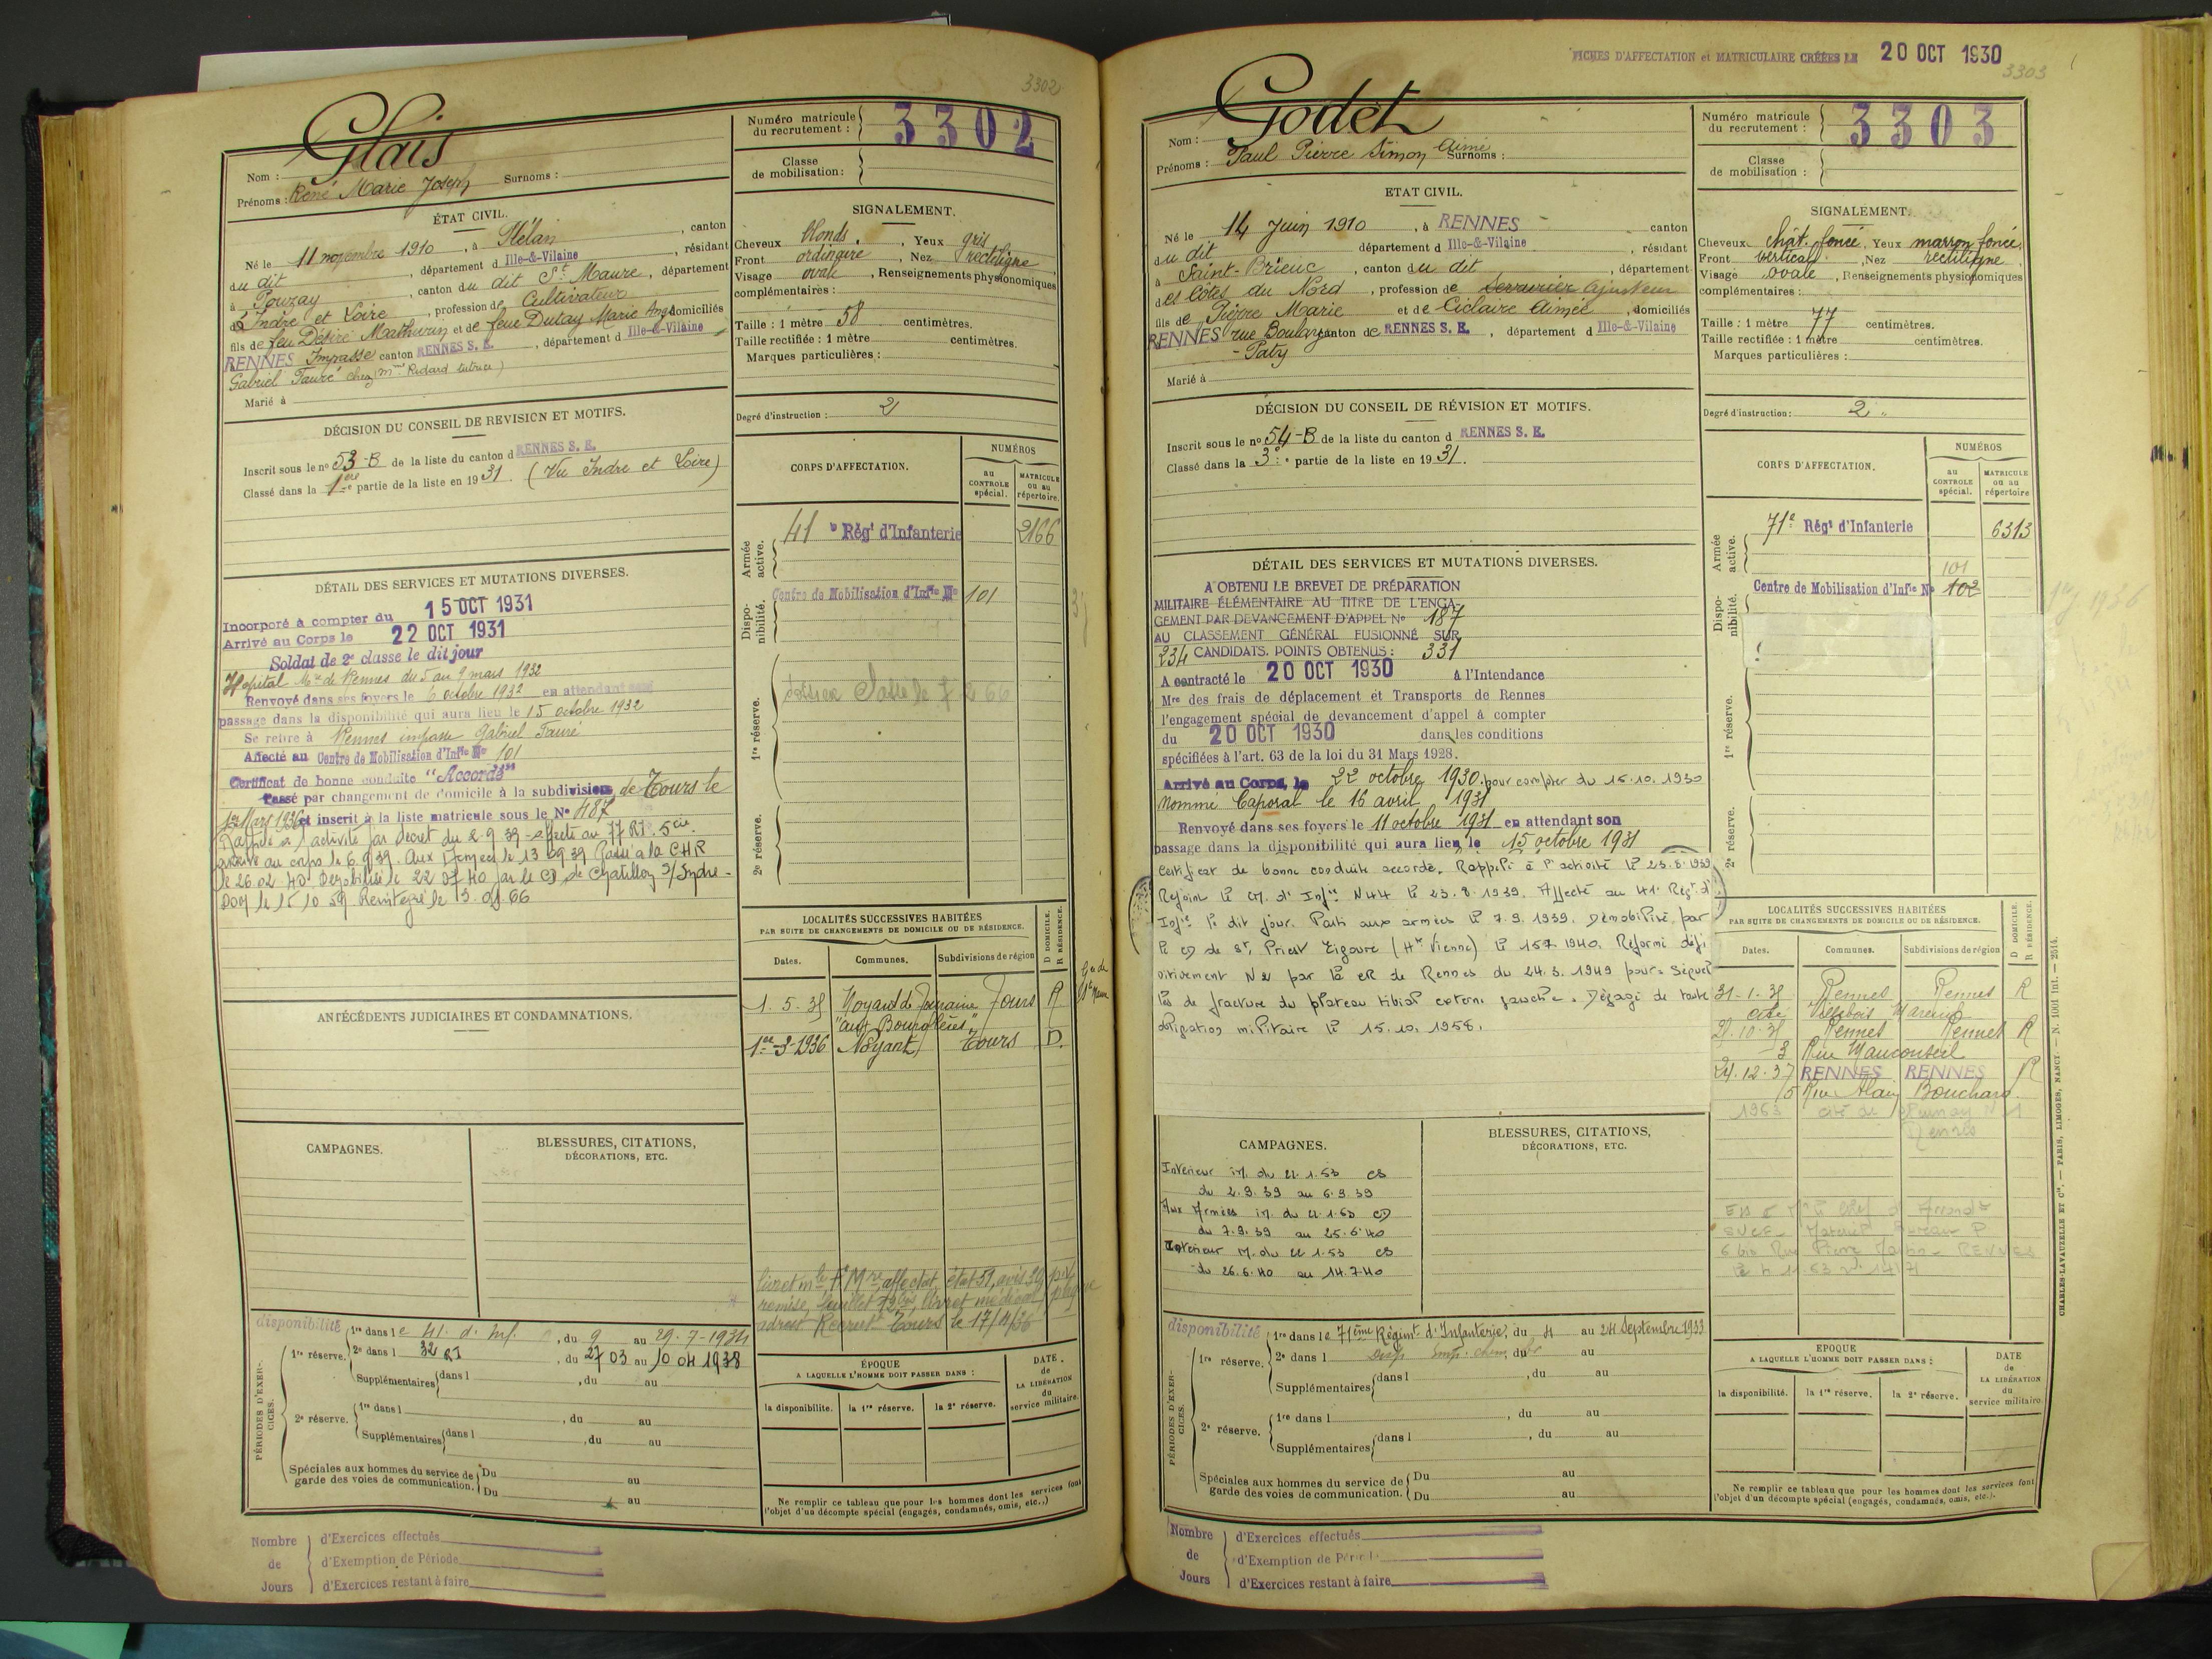 3302
Glais
Nom :
Prénoms : René Marie Joseph Surnoms :
Numéro matricule du recrutement : 3302
Classe de mobilisation :
ÉTAT CIVIL.
Né le 11 novembre 1910, à Plélan, canton
du dit, département d Ille-&-Vilaine, résidant
à Pouzay, canton du dit St Maure, département
d Indre et Loire, profession de Cultivateur
fils de feu Désiré Mathurin et de feue Dutay Marie Ange domiciliés
RENNES Impasse canton RENNES S. E., département d Ille-&-Vilaine
Gabriel Fauré chez (Mme Ridard tutrice)
Marié à
SIGNALEMENT.
Cheveux blonds, Yeux gris
Front ordinaire, Nez rectiligne
Visage ovale, Renseignements physionomiques
complémentaires :
Taille : 1 mètre 58 centimètres.
Taille rectifiée : 1 mètre centimètres.
Marques particulières :
Degré d'instruction : 2
DÉCISION DU CONSEIL DE REVISION ET MOTIFS.
Inscrit sous le no 53-B de la liste du canton d RENNES S. E.
Classé dans la 1ère partie de la liste en 1931. (Vu Indre et Loire)
CORPS D'AFFECTATION.
NUMÉROS
au CONTROLE spécial.
MATRICULE ou au répertoire.
Armée active.
41e Régt d'Infanterie 2166
Disponibilité.
Centre de Mobilisation d'Infie No 101
1re réserve.
2e réserve.
DÉTAIL DES SERVICES ET MUTATIONS DIVERSES.
Incorporé à compter du 15 OCT 1931
Arrivé au Corps le 22 OCT 1931
Soldat de 2e classe le dit jour
Hôpital Mre de Rennes du 5 au 9 mars 1932
Renvoyé dans ses foyers le 6 octobre 1932 en attendant son
passage dans la disponibilité qui aura lieu le 15 octobre 1932
Se retire à Rennes impasse Gabriel Fauré
Affecté au Centre de Mobilisation d'Infie No 101
Certificat de bonne conduite "Accordé"
Passé par changement de domicile à la subdivision de Tours le
1er Mars 1936 et inscrit à la liste matricule sous le No 487
Rappelé à l'activité par décret du 2-9 39 - affecté au 77 RI 5 cie.
arrivé au corps le 6.9.39. Aux Armées le 13 09 39 Passé à la CHR
le 26 02 40. Démobilisé le 22 07 40 par le CD de Chatillon s/Indre -
DOM le 15 10 59
LOCALITÉS SUCCESSIVES HABITÉES
PAR SUITE DE CHANGEMENTS DE DOMICILE OU DE RÉSIDENCE.
D DOMICILE. R RÉSIDENCE.
Dates. Communes. Subdivisions de région
1. 5. 35 Noyant de Touraine Tours R
1er-3-1936 Noyant Tours D.
ANTÉCÉDENTS JUDICIAIRES ET CONDAMNATIONS.
CAMPAGNES.
BLESSURES, CITATIONS,
DÉCORATIONS, ETC.
adressé Recrut Tours le 17/4/36
PÉRIODES D'EXERCICES.
disponibilité
1re réserve. 1re dans le 41e d'Inf., du 9 au 29-7-1934
2e dans l 32 RI, du 27 03 au 10 04 1938
Supplémentaires dans l, du au
2e réserve. 1re dans l, du au
Supplémentaires dans l, du au
Spéciales aux hommes du service de garde des voies de communication. Du au
Du au
ÉPOQUE
A LAQUELLE L'HOMME DOIT PASSER DANS :
la disponibilité. la 1re réserve. la 2e réserve.
DATE de LA LIBÉRATION du service militaire.
Ne remplir ce tableau que pour les hommes dont les services font
l'objet d'un décompte spécial (engagés, condamnés, omis, etc..)
Nombre de Jours
d'Exercices effectués
d'Exemption de Période
d'Exercices restant à faire
FICHES D'AFFECTATION et MATRICULAIRE CRÉÉES LE 20 OCT 1930
3303
Godet
Nom :
Prénoms : Paul Pierre Simon Aimé Surnoms :
Numéro matricule du recrutement : 3303
Classe de mobilisation :
ETAT CIVIL.
Né le 14 Juin 1910, à RENNES canton
du dit département d Ille-&-Vilaine, résidant
à Saint-Brieuc, canton du dit, département
des Côtes du Nord, profession de Serrurier Ajusteur
fils de Pierre Marie et de Ciclaire Aimée, domiciliés
RENNES rue Boulay canton de RENNES S. E., département d Ille-&-Vilaine
- Paty
Marié à
SIGNALEMENT.
Cheveux chât. foncé, Yeux marron foncé,
Front vertical, Nez rectiligne,
Visage ovale, Renseignements physionomiques
complémentaires :
Taille : 1 mètre 77 centimètres.
Taille rectifiée : 1 mètre centimètres.
Marques particulières :
Degré d'instruction : 2.
DÉCISION DU CONSEIL DE RÉVISION ET MOTIFS.
Inscrit sous le no 54-B de la liste du canton d RENNES S. E.
Classé dans la 3e partie de la liste en 1931.
CORPS D'AFFECTATION.
NUMÉROS
au CONTROLE spécial.
MATRICULE ou au répertoire
Armée active.
71e Régt d'Infanterie 6313
101
Disponibilité.
Centre de Mobilisation d'Infie No 102
1re réserve.
2e réserve.
DÉTAIL DES SERVICES ET MUTATIONS DIVERSES.
A OBTENU LE BREVET DE PRÉPARATION
MILITAIRE ÉLÉMENTAIRE AU TITRE DE L'ENGA-
GEMENT PAR DEVANCEMENT D'APPEL No 187
AU CLASSEMENT GÉNÉRAL FUSIONNÉ SUR
234 CANDIDATS. POINTS OBTENUS : 331
A contracté le 20 OCT 1930 à l'Intendance
Mre des frais de déplacement et Transports de Rennes
l'engagement spécial de devancement d'appel à compter
du 20 OCT 1930 dans les conditions
spécifiées à l'art. 63 de la loi du 31 Mars 1928.
Arrivé au Corps, le 22 octobre 1930. pour compter du 15.10.1930
Nommé Caporal le 16 avril 1931
Renvoyé dans ses foyers le 11 octobre 1931 en attendant son
passage dans la disponibilité qui aura lieu le 15 octobre 1931
Certificat de bonne conduite accordé. Rappelé à l'activité le 23.8.1939
Rejoint le CM. d'Infie N44 le 23.8.1939. Affecté au 41e Regt d'
Infie le dit jour. Parti aux armées le 7.9.1939. Démobilisé par
le CD de St Priest Ligoure (Hte Vienne) le 15 7 1940. Réformé défi
nitivement N2 par la CR de Rennes du 24.3.1949 pour: Séquel
les de fracture du plateau tibial externe gauche. Dégagé de toute
obligation militaire le 15.10.1958.
LOCALITÉS SUCCESSIVES HABITÉES
PAR SUITE DE CHANGEMENTS DE DOMICILE OU DE RÉSIDENCE.
D DOMICILE. R RÉSIDENCE.
Dates. Communes. Subdivisions de région
31-1-35 Rennes Rennes R
Rennes Rennes R
3 Rue Mauconseil
24.12.37 RENNES RENNES R
5 Rue Alain Bouchard.
1963
Rennes
CAMPAGNES.
Intérieur im. du 22.1.53 CS
du 2.9.39 au 6.9.39
Aux Armées im. du 22.1.53 CD
du 7.9.39 au 25.6.40
Intérieur im. du 22.1.53 CS
du 26.6.40 au 14.7.40
BLESSURES, CITATIONS,
DÉCORATIONS, ETC.
PÉRIODES D'EXERCICES.
disponibilité
1re réserve. 1re dans le 71ème Régimt d'Infanterie, du 4 au 24 Septembre 1933
2e dans l du au
Supplémentaires dans l, du au
2e réserve. 1re dans l, du au
Supplémentaires dans l, du au
Spéciales aux hommes du service de garde des voies de communication. Du au
Du au
EPOQUE
A LAQUELLE L'HOMME DOIT PASSER DANS :
la disponibilité. la 1re réserve. la 2e réserve.
DATE de LA LIBÉRATION du service militaire.
Ne remplir ce tableau que pour les hommes dont les services font
l'objet d'un décompte spécial (engagés, condamnés, omis, etc.).
Nombre de Jours
d'Exercices effectués
d'Exemption de Période
d'Exercices restant à faire
CHARLES-LAVAUZELLE ET Cie. — PARIS, LIMOGES, NANCY. — N. 1001 Int. — 2514.